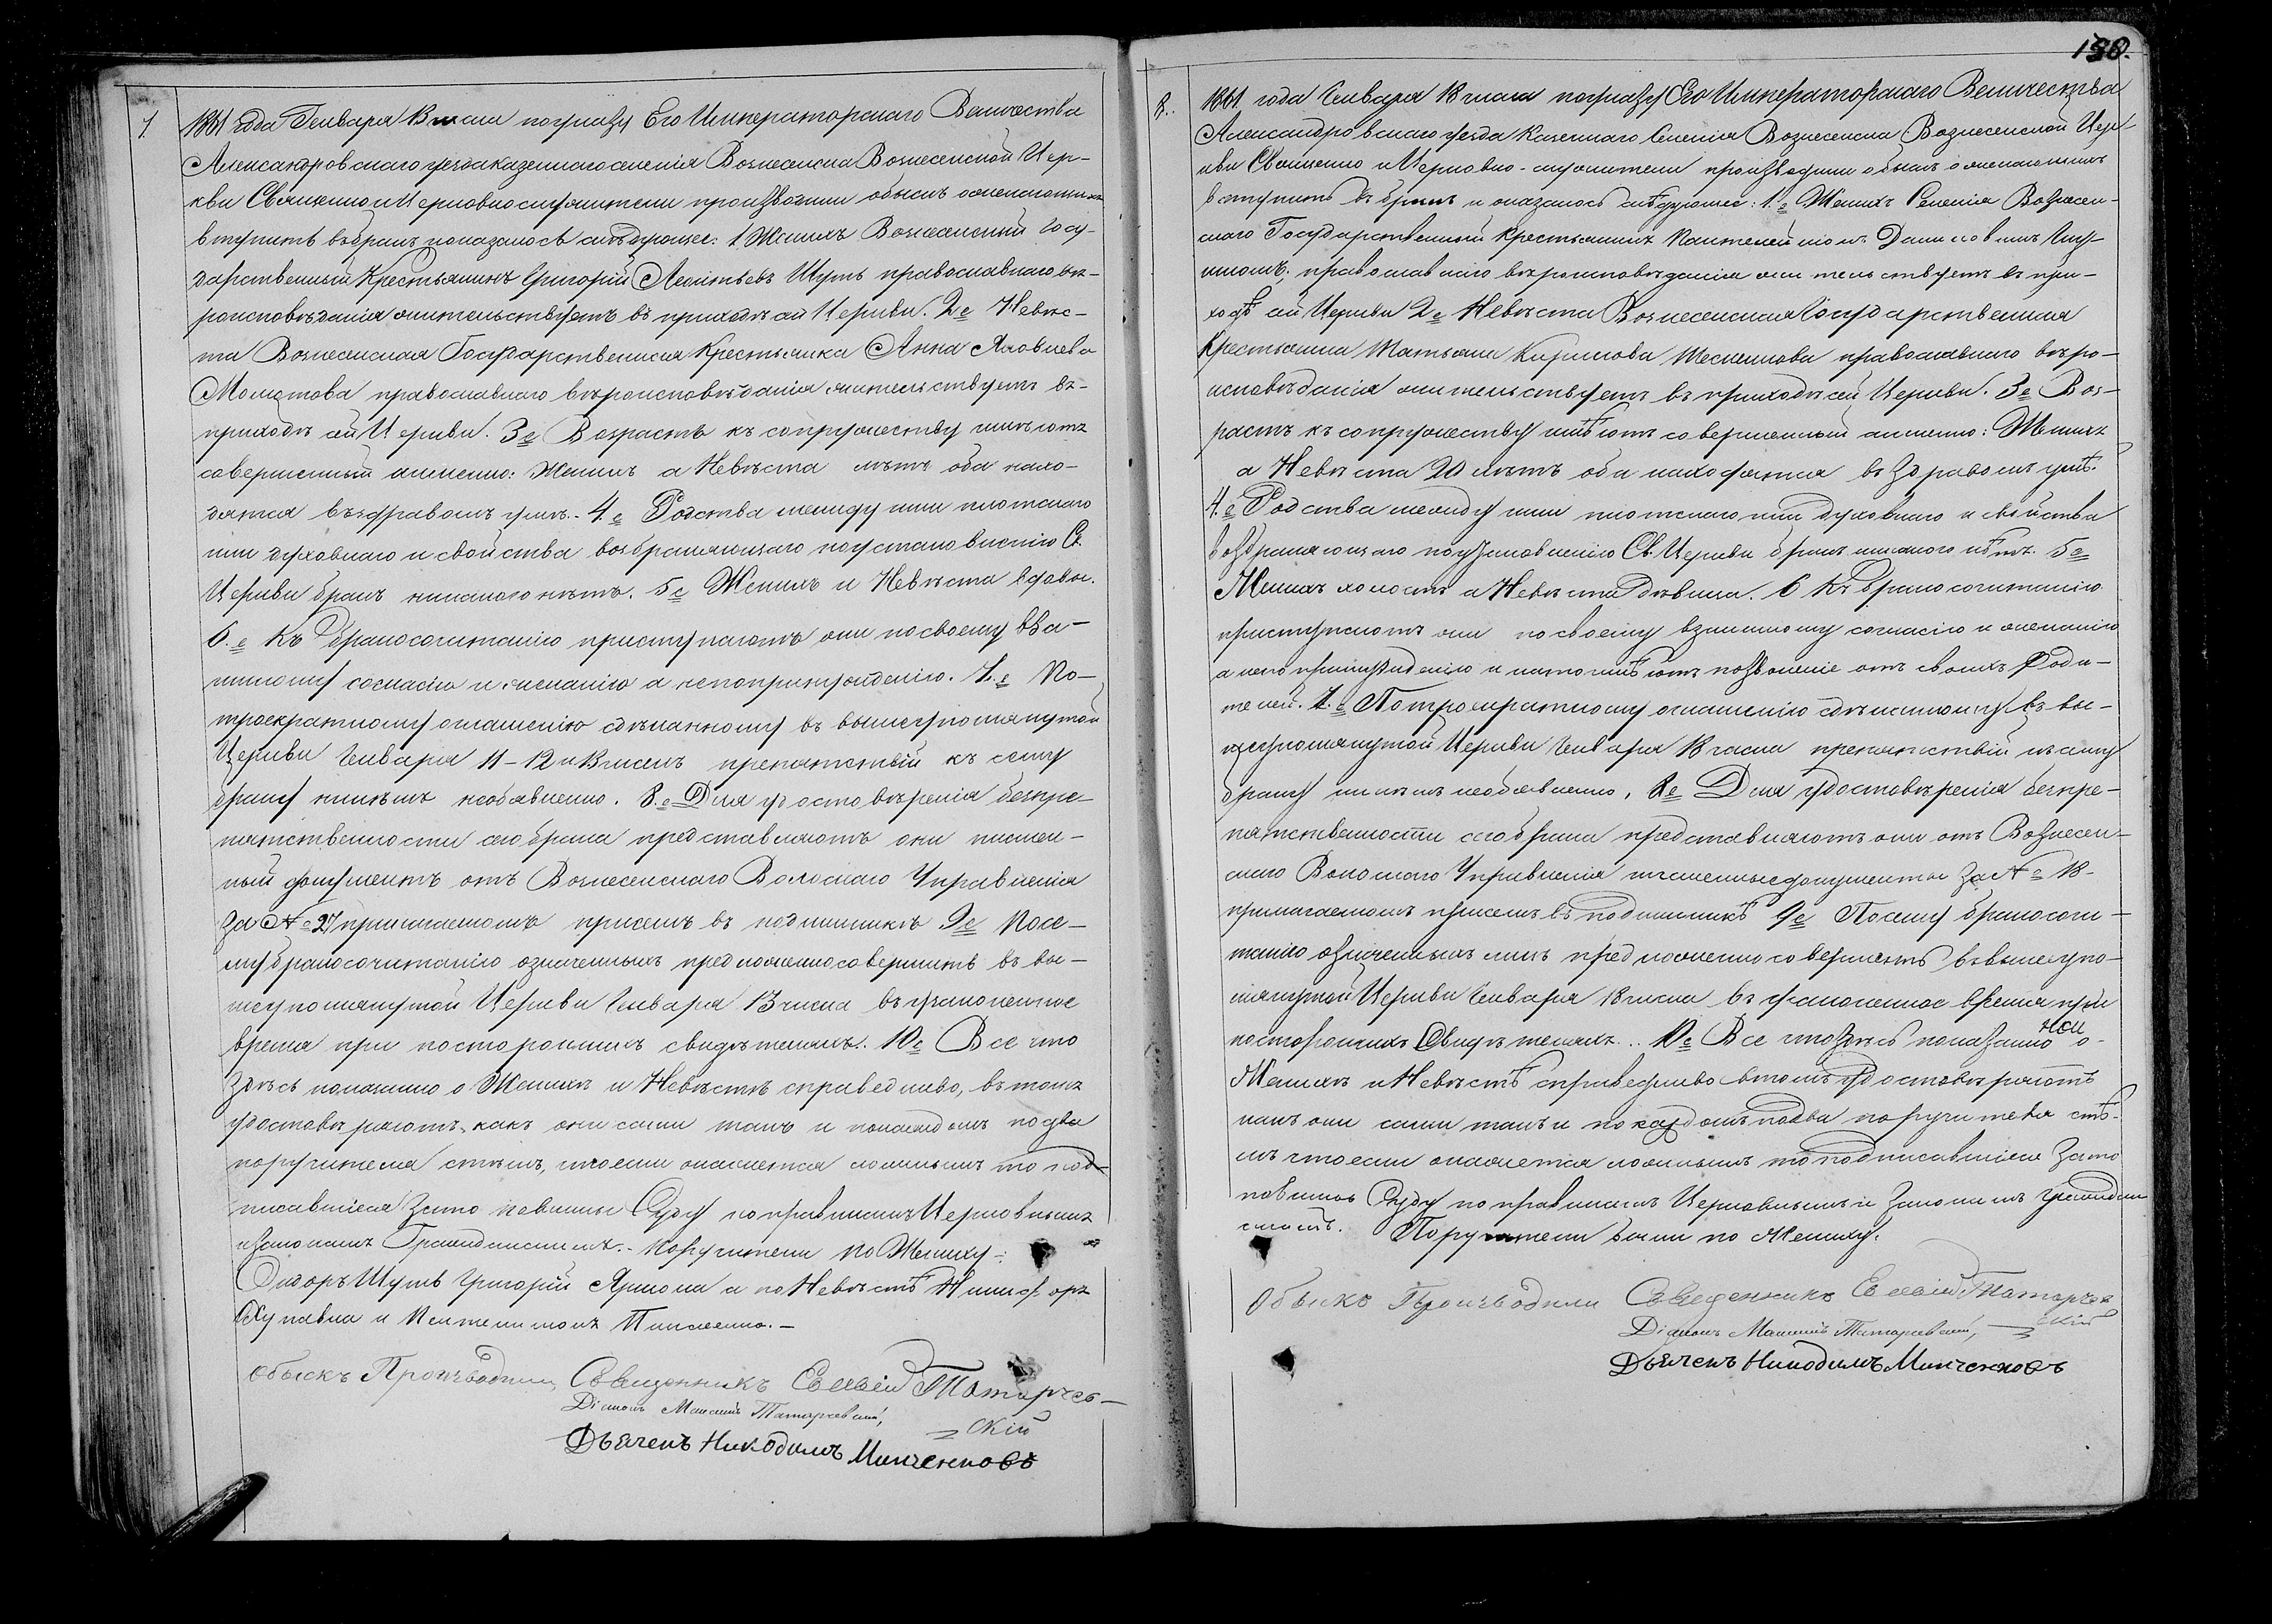 7
1861 года Генваря 13 числа по указу Его Императорскаго Величества
Александровскаго уезда казеннаго селенія Вознесенска Вознесенской Цер-
кви Священно и Церковнослужители производили обыскъ о желающихъ
вступить въ бракъ и оказалось слѣдующее: 1 Женихъ Вознесенскій Госу-
дарственный Крестьянинъ Григорій Леонтьевъ Шуть православнаго вѣ-
роисповѣданія жительствуетъ въ приходѣ сей Церкви. 2е Невѣс-
та Вознесенская Государственная Крестьянка Анна Яковлева
православнаго вѣроисповѣданія жительствуетъ въ-
приходѣ сей Церкви. 3е Возрастъ къ сопружеству имѣютъ
совершенный а именно: Женихъ а Невѣста лѣтъ оба нахо-
дятся въ здравомъ умѣ.- 4.е Родства между ими плотскаго
или духовнаго и свойства возбраняющаго по установленію Св.
Церкви бракъ никакого нѣтъ. 5е Женихъ и Невѣста вдовы.
6.е Къ бракосочитанію приступаютъ они по своему вза-
имному согласію и желанію а не по принужденію. 7.е По-
троекратному оглашенію сдѣланному въ вышеупомянутой
Церкви Генваря 11-12 и 13 чиселъ препятствій къ сему
браку никѣмъ необявленно. 8.е Для удостовѣренія безпре-
пятственности сего брака представляютъ они писмен-
ный документъ отъ Вознесенскаго Волоснаго Управленія
за № 27 прилагаемомъ присемъ въ подлинникѣ 9е Посе-
му бракосочитанію означенныхъ предположено совершить въ вы-
шеупомянутой Церкви Генваря 13 числа въ узаконенное
время при постороннихъ свидѣтеляхъ. 10е Все что
здѣсь показанно о Женихѣ и Невѣстѣ справедливо, въ томъ
удостовѣряютъ какъ они сами такъ и покаждомъ по два
поручителя стѣмъ, что если окажется ложнымъ то под-
писавшіеся зато повинны Суду по правиламъ Церковнымъ
и законамъ Гражданскимъ.- Поручители по Жениху:
Сидоръ Шуть Григорій Ярмола а по Невѣстѣ Никифоръ
и Пантелимонъ
Обыскъ Производили, Священникъ Евлвій Татарчев-
Діаконъ Татарчевскій, скій
Дьячекъ Никодимъ Минченковъ
190.
8.
1861 года Генваря 18 числа по указу Его Императорскаго Величества
Александровскаго уезда Казеннаго Селенія Вознесенска Вознесенской Цер-
кви Священно и Церковно-служители производили обыскъ о желающихъ
вступить въ бракъ и оказалось слѣдующее: 1.е Женихъ Селенія Вознесен-
скаго Государственный Крестьянинъ Пантелеймонъ Даниловъ
православнаго вѣроисповѣданія жительствуетъ въ при-
ходѣ сей Церкви 2е Невѣста Вознесенская Государственная
Крестьянка Татьяна Кирилова православнаго вѣро-
исповѣданія жительствуетъ въ приходѣ сей Церкви. 3е Воз-
растъ къ сопружеству имѣютъ совершенный а именно: Женихъ
а Невѣста 20 лѣтъ оба находятся въ здравомъ умѣ.
4.е Родства между ими плотскаго или духовнаго и свойства
возбраняющаго по установленію Св. Церкви бракъ никакого нѣтъ. 5е
Женихъ холостъ а Невѣста Дѣвица. 6 Къ бракосочитанію
приступаютъ они по своему взаимному согласію и желанію
а не по принужденію и на то имѣютъ позволеніе отъ своихъ Роди-
телей. 7.е По троекратному оглашенію сдѣланному въ вы-
шеупомянутой Церкви Генваря 18 числа препятствій къ сему
браку никѣмъ необявленно. 8е Для удостовѣренія безпре-
пятственности сего брака представляютъ они отъ Вознесен-
скаго Волоснаго Управленія писменные документы за № 18-
прилагаемомъ присемъ въ подлинникѣ 9е Посему бракосочи-
танію означенныхъ лицъ предположенно совершить въ вышеупо-
мянутой Церкви Генваря 18 числа въ узаконенное время при
постороннихъ Свидѣтеляхъ... 10е Все что здѣсь показанно о-
Женихѣ и Невѣстѣ справедливо втомъ удостовѣряютъ
какъ они сами такъ и по каждомъ подва поручителя стѣ-
мъ что если окажется ложнымъ то подписавшіеся зато
повинны Суду по правиламъ Церковнымъ и законамъ граждан
скимъ. Поручители были по Жениху:
Обыскъ Производили Священникъ Евлвій Татарчев
Діаконъ Татарчевскій, скій
Дьячекъ Никодимъ Минченковъ